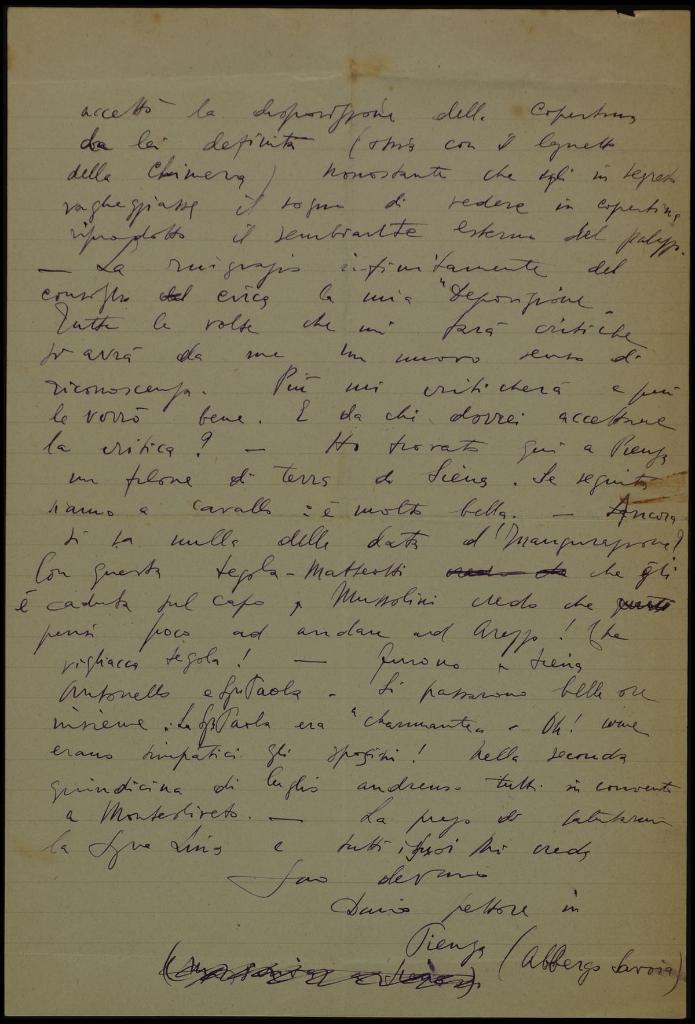 accettò la disposizione della copertina
da lei definita (ossia con il legnetto
della Chimera) nonostante che egli in segreto
vagheggiasse il sogno di vedere in copertina
riprodotto il sembiante esterno del palazzo.
— La ringrazio infinitamente del
consiglio circa la mia "Deposizione"
Tutte le volte che mi farà critiche
si avrà da me un nuovo senso di
riconoscenza. Più mi criticherà e più
le vorrò bene. E da chi dovrei accettare
la critica? — Ho trovato qui a Pienza
un filone di terra di Siena. Se seguita
siamo a cavallo: è molto bella. — Ancora
si sa nulla della data d'Inaugurazione?
Con questa tegola-Matteotti che gli
è caduta sul capo, Mussolini credo che
pensi poco ad andare ad Arezzo! Che
vigliacca tegola! — Furono a Siena
Antonello e Paola. Si passarono belle ore
insieme. La Paola era "charmante". Oh! come
erano simpatici gli sposini! Nella seconda
quindicina di luglio andremo tutti in convento
a Monteoliveto. — La prego di salutarmi
la Sgra Lina e tutti i suoi Mi creda
Suo devmo
Dario pittore in
Pienza (Albergo Savoia)